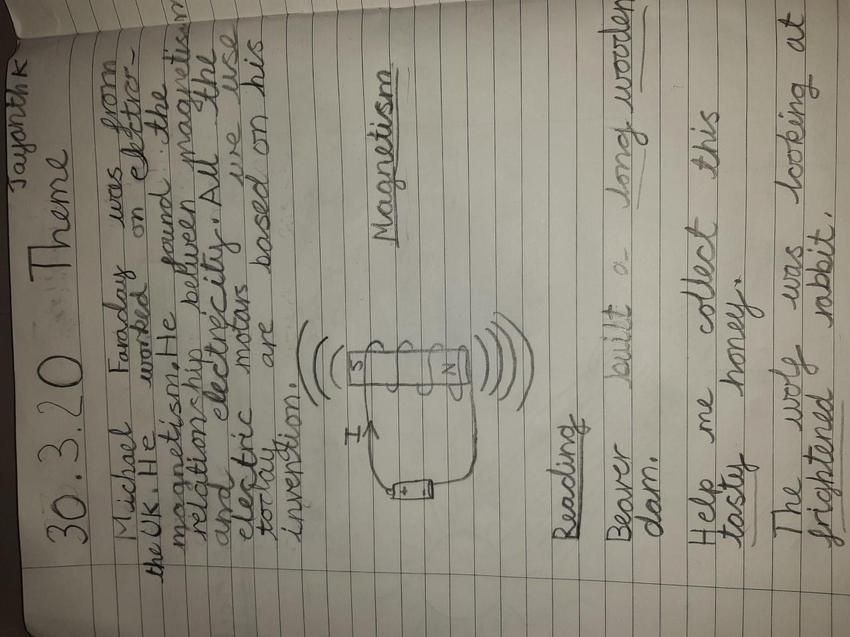 Jayanth K
30.3.20 Theme
Michael Faraday was from
the UK. He worked on elettro-
magnetism. He found the
relationship between magnetism
and electricity. All the
electric motars we use
today are based on his
invention.
Magnetism
I
S
N
+ -
Reading
Beaver built a long wooden
dam.
Help me collect this
tasty honey.
The wolf was looking at
frightened rabbit.